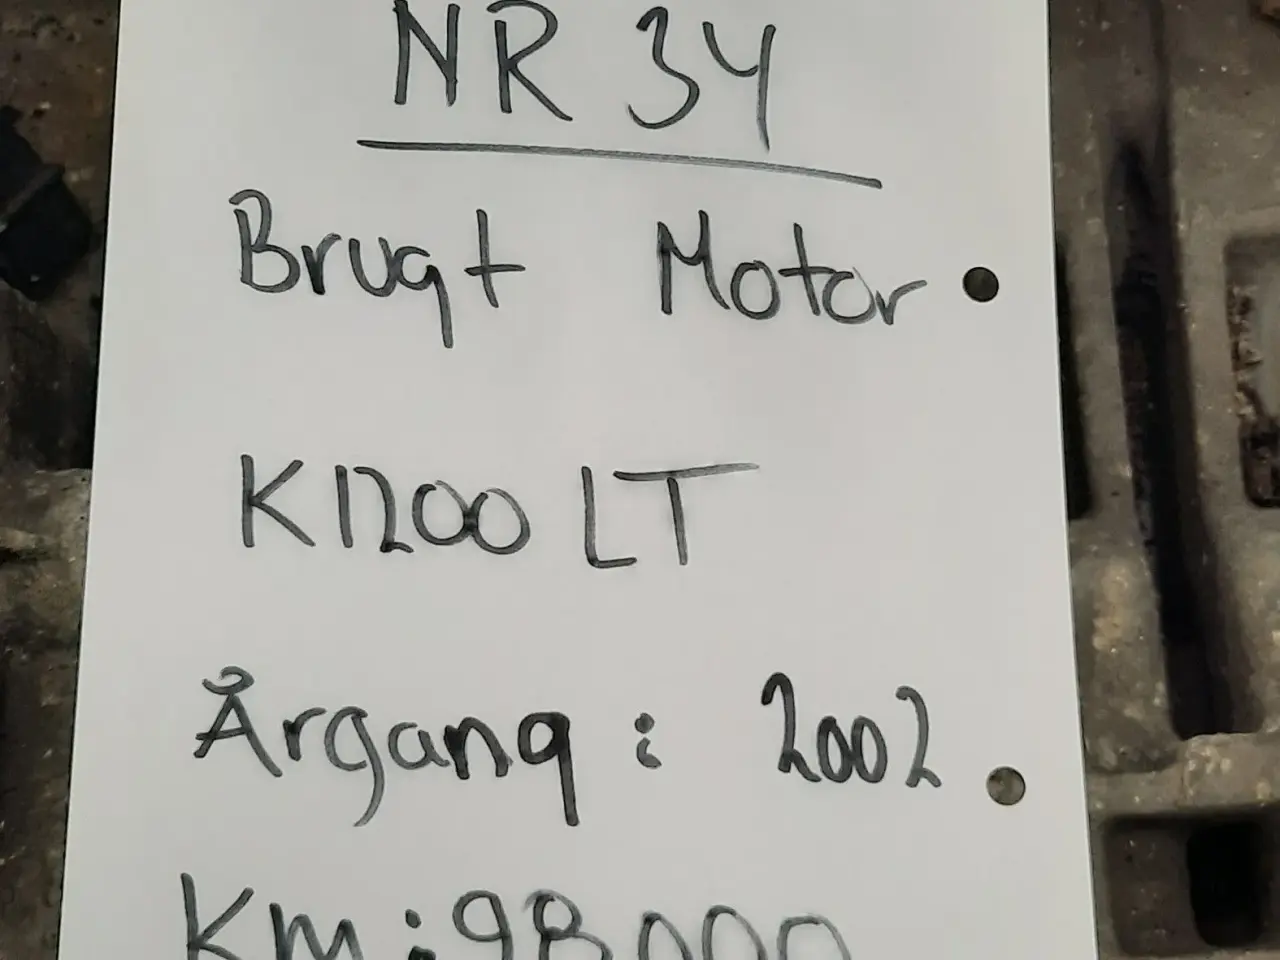 NR 34
Brugt Motor
K1200 LT
Årgang : 2002
Km : 98000